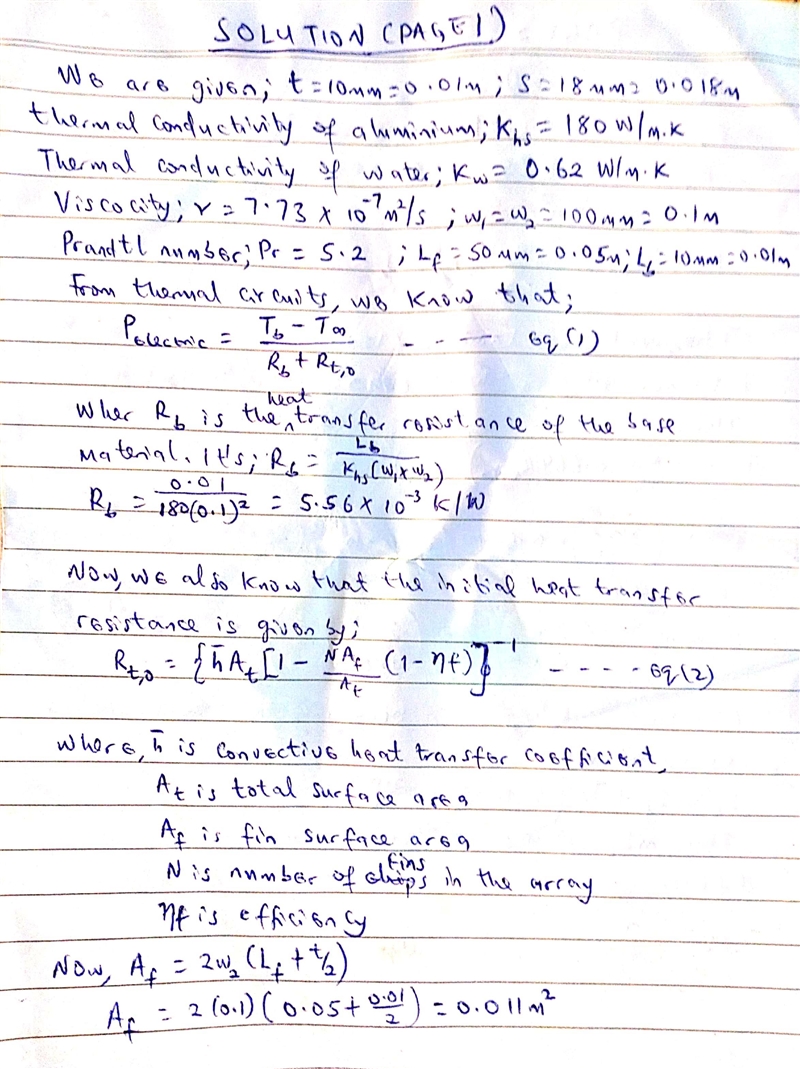 SOLUTION (PAGE 1)
We are given; t = 10mm = 0.01m ; S = 18mm = 0.018m
thermal conductivity of aluminium; Khs = 180 W/m.K
Thermal conductivity of water; Kw = 0.62 W/m.K
Viscocity; v = 7.73 × 10⁻⁷ m²/s ; w₁ = w₂ = 100mm = 0.1m
Prandtl number; Pr = 5.2 ; Lf = 50mm = 0.05m; Lb = 10mm = 0.01m
From thermal circuits, we know that;
Pelectric = (Tb − T∞) / (Rb + Rt,o) - - - - - eq (1)
Wher Rb is the heat transfer resistance of the base
Material. It's; Rb = Lb / (Khs (w₁ × w₂))
Rb = 0.01 / (180(0.1)²) = 5.56 × 10⁻³ K/W
Now, we also know that the initial heat transfer
resistance is given by;
Rt,o = {h̄At [1 − (NAf / At) (1 − ηf)]}⁻¹ - - - - - eq (2)
where, h̄ is convective heat transfer coefficient,
At is total surface area
Af is fin surface area
N is number of fins in the array
ηf is efficiency
Now, Af = 2w₂ (Lf + t/2)
Af = 2 (0.1) (0.05 + 0.01/2) = 0.011 m²